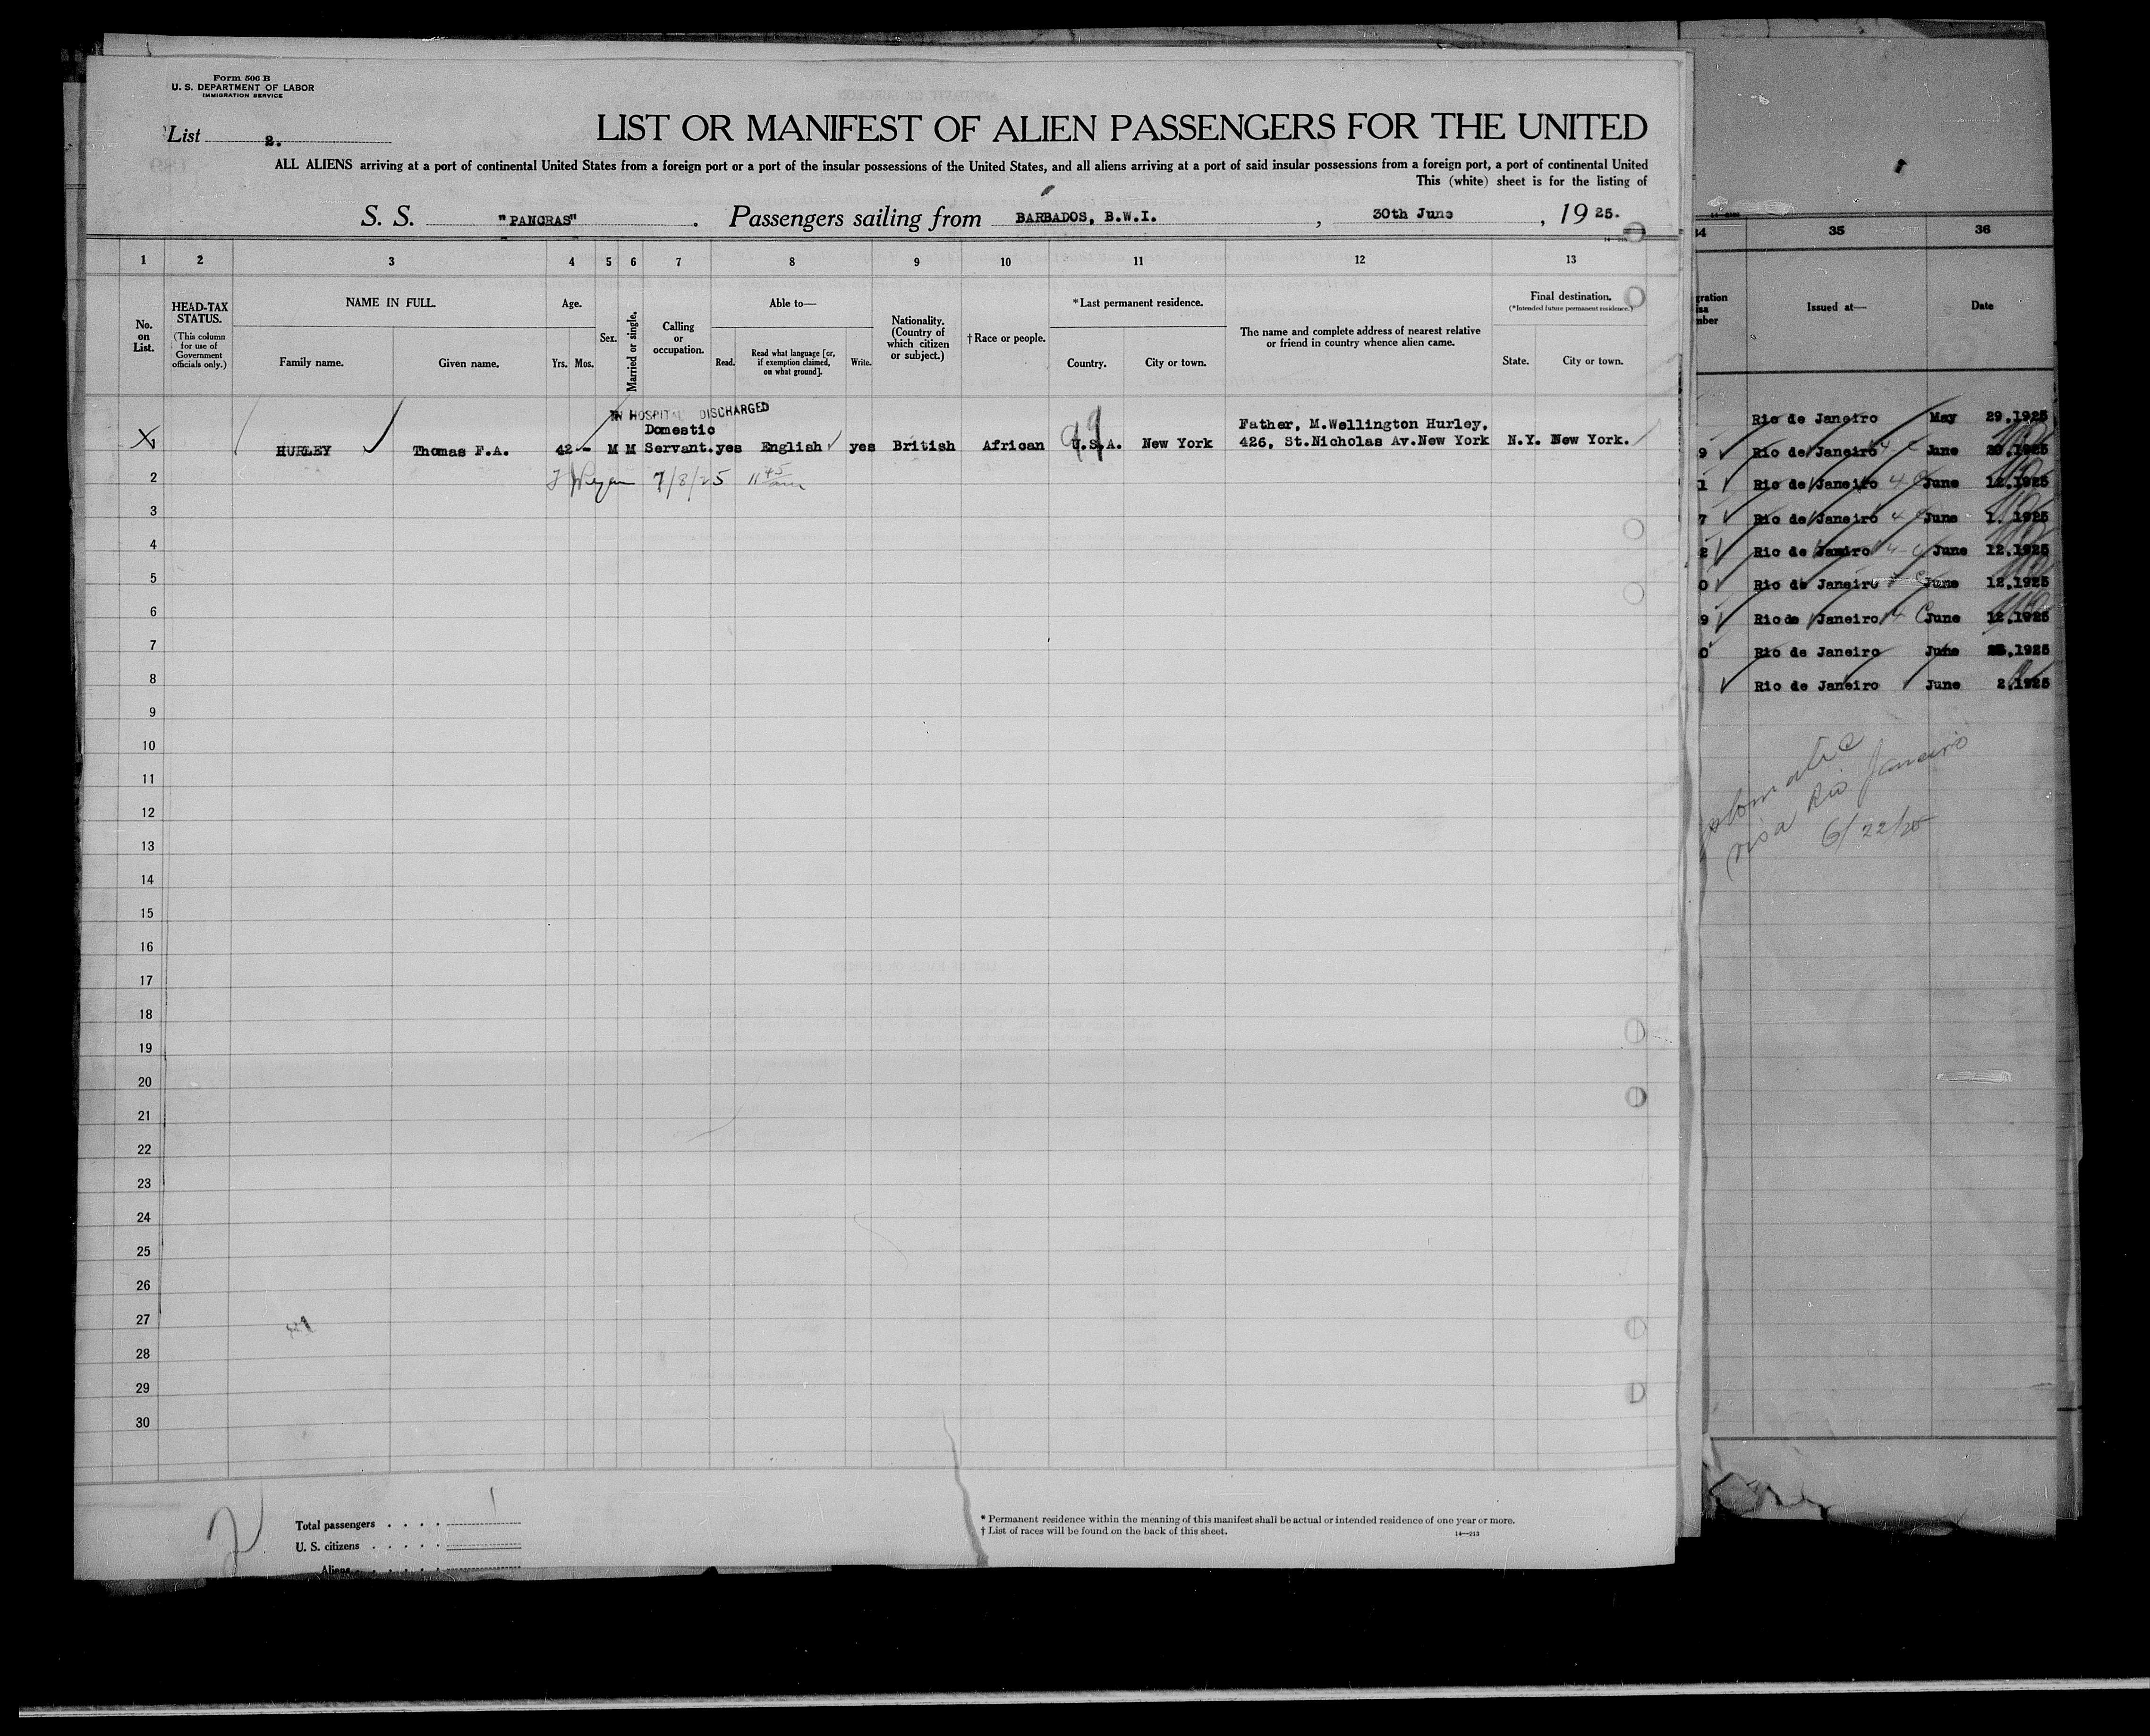 Form 500 B
U. S. DEPARTMENT OF LABOR
IMMIGRATION SERVICE
List 2.
LIST OR MANIFEST OF ALIEN PASSENGERS FOR THE UNITED
ALL ALIENS arriving at a port of continental United States from a foreign port or a port of the insular possessions of the United States, and all aliens arriving at a port of said insular possessions from a foreign port, a port of continental United
This (white) sheet is for the listing of
S. S. "PANCRAS". Passengers sailing from BARBADOS, B.W.I., 30th June, 1925.
1 2 3 4 5 6 7 8 9 10 11 12 13
No. on List.
HEAD-TAX STATUS.
(This column for use of Government officials only.)
NAME IN FULL.
Family name. Given name.
Age.
Yrs. Mos.
Sex.
Married or single.
Calling or occupation.
Able to—
Read. Read what language [or, if exemption claimed, on what ground]. Write.
Nationality. (Country of which citizen or subject.)
†Race or people.
*Last permanent residence.
Country. City or town.
The name and complete address of nearest relative or friend in country whence alien came.
Final destination.
(*Intended future permanent residence.)
State. City or town.
IN HOSPITAL DISCHARGED
1 HURLEY Thomas F.A. 42 - M M Domestic Servant. yes English yes British African U.S.A. New York Father, M.Wellington Hurley, 426, St.Nicholas Av.New York N.Y. New York.
99
2 7/8/25 11 45 am
3
4
5
6
7
8
9
10
11
12
13
14
15
16
17
18
19
20
21
22
23
24
25
26
27
28
29
30
2
Total passengers . . . . 1
U. S. citizens . . . . .
Aliens . . . . . .
* Permanent residence within the meaning of this manifest shall be actual or intended residence of one year or more.
† List of races will be found on the back of this sheet.
14—213
34 35 36
Issued at— Date
Rio de Janeiro May 29.1925
9 Rio de Janeiro June 1925
1 Rio de Janeiro June 12.1925
7 Rio de Janeiro June 1. 1925
2 Rio de Janiro June 12.1925
0 Rio de Janeiro June 12.1925
9 Riode Janeiro June 12.1925
0 Rio de Janeiro June 1925
Rio de Janeiro June 2.1925
visa Rio Janeiro
6/22/25